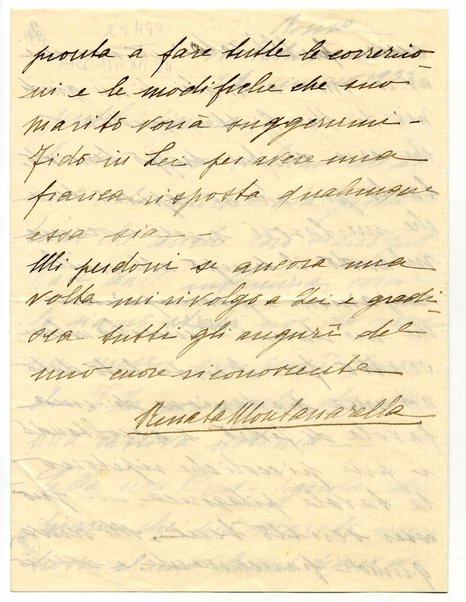 pronta a fare tutte le correzio
ni e le modifiche che suo
marito vorrà suggerirmi -
Fido in Lei per avere una
franca risposta qualunque
essa sia -
Mi perdoni se ancora una
volta mi rivolgo a Lei e gradi-
sca tutti gli auguri del
mio cuore riconoscente
Renata Montanarella